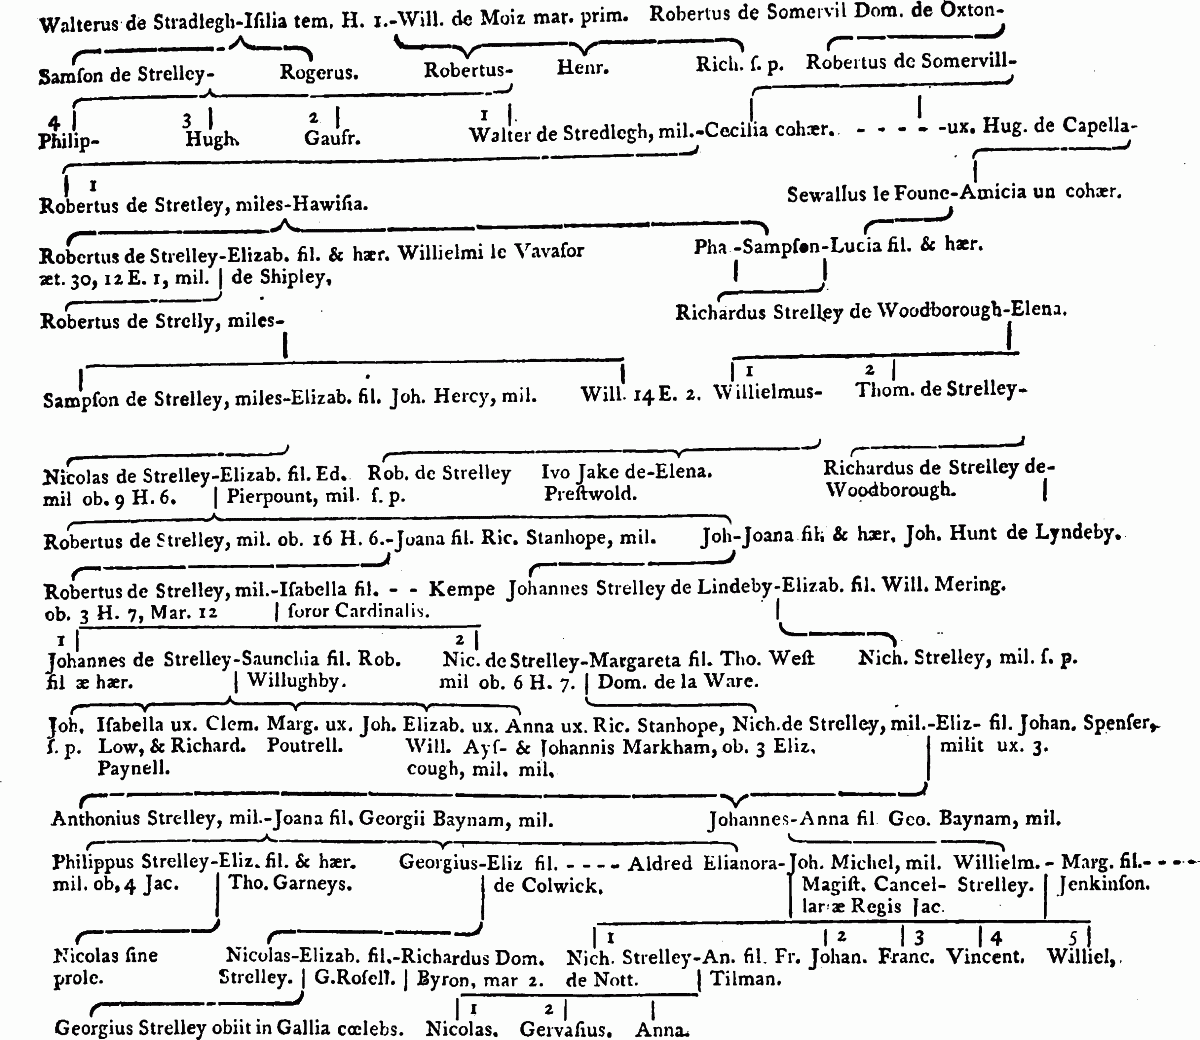 Walterus de Stradlegh-Iſilia tem. H. 1.-Will. de Moiz mar. prim. Robertus de Somervil Dom. de Oxton-
Samſon de Strelley- Rogerus. Robertus- Henr. Rich. ſ. p. Robertus de Somervill-
4 3 2 1
Philip- Hugh. Gaufr. Walter de Stredlegh, mil.-Cecilia cohær. - - - - -ux. Hug. de Capella-
1
Robertus de Stretley, miles-Hawiſia. Sewallus le Foune-Amicia un cohær.
Robertus de Strelley-Elizab. fil. & hær. Willielmi le Vavaſor Pha -Sampſon-Lucia fil. & hær.
æt. 30, 12 E. 1, mil. | de Shipley,
Robertus de Strelly, miles- Richardus Strelley de Woodborough-Elena.
1 2
Sampſon de Strelley, miles-Elizab. fil. Joh. Hercy, mil. Will. 14 E. 2. Willielmus- Thom. de Strelley-
Nicolas de Strelley-Elizab. fil. Ed. Rob. de Strelley Ivo Jake de-Elena. Richardus de Strelley de-
mil ob. 9 H. 6. | Pierpount, mil. ſ. p. Preſtwold. Woodborough.
Robertus de Strelley, mil. ob. 16 H. 6.-Joana fil. Ric. Stanhope, mil. Joh-Joana fil. & hær. Joh. Hunt de Lyndeby.
Robertus de Strelley, mil.-Iſabella fil. - - Kempe Johannes Strelley de Lindeby-Elizab. fil. Will. Mering.
ob. 3 H. 7, Mar. 12 | ſoror Cardinalis.
1 2
Johannes de Strelley-Saunchia fil. Rob. Nic. de Strelley-Margareta fil. Tho. Weſt Nich. Strelley, mil. ſ. p.
fil æ hær. | Willughby. mil ob. 6 H. 7. | Dom. de la Ware.
Joh. Iſabella ux. Clem. Marg. ux. Joh. Elizab. ux. Anna ux. Ric. Stanhope, Nich. de Strelley, mil.-Eliz- fil. Johan. Spenſer,
ſ. p. Low, & Richard. Poutrell. Will. Ayſ- & Johannis Markham, ob. 3 Eliz. | milit ux. 3.
Paynell. cough, mil. mil.
Anthonius Strelley, mil.-Joana fil. Georgii Baynam, mil. Johannes-Anna fil Geo. Baynam, mil.
Philippus Strelley-Eliz. fil. & hær. Georgius-Eliz fil. - - - - Aldred Elianora-Joh. Michel, mil. Willielm. - Marg. fil.- - - -
mil. ob. 4 Jac. | Tho. Garneys. | de Colwick. | Magiſt. Cancel- Strelley. | Jenkinſon.
lariæ Regis Jac.
1 2 3 4 5
Nicolas ſine Nicolas-Elizab. fil.-Richardus Dom. Nich. Strelley-An. fil. Fr. Johan. Franc. Vincent. Williel,.
prole. Strelley. | G.Roſell. | Byron, mar 2. de Nott. | Tilman.
1 2
Georgius Strelley obiit in Gallia cœlebs. Nicolas. Gervaſius. Anna.